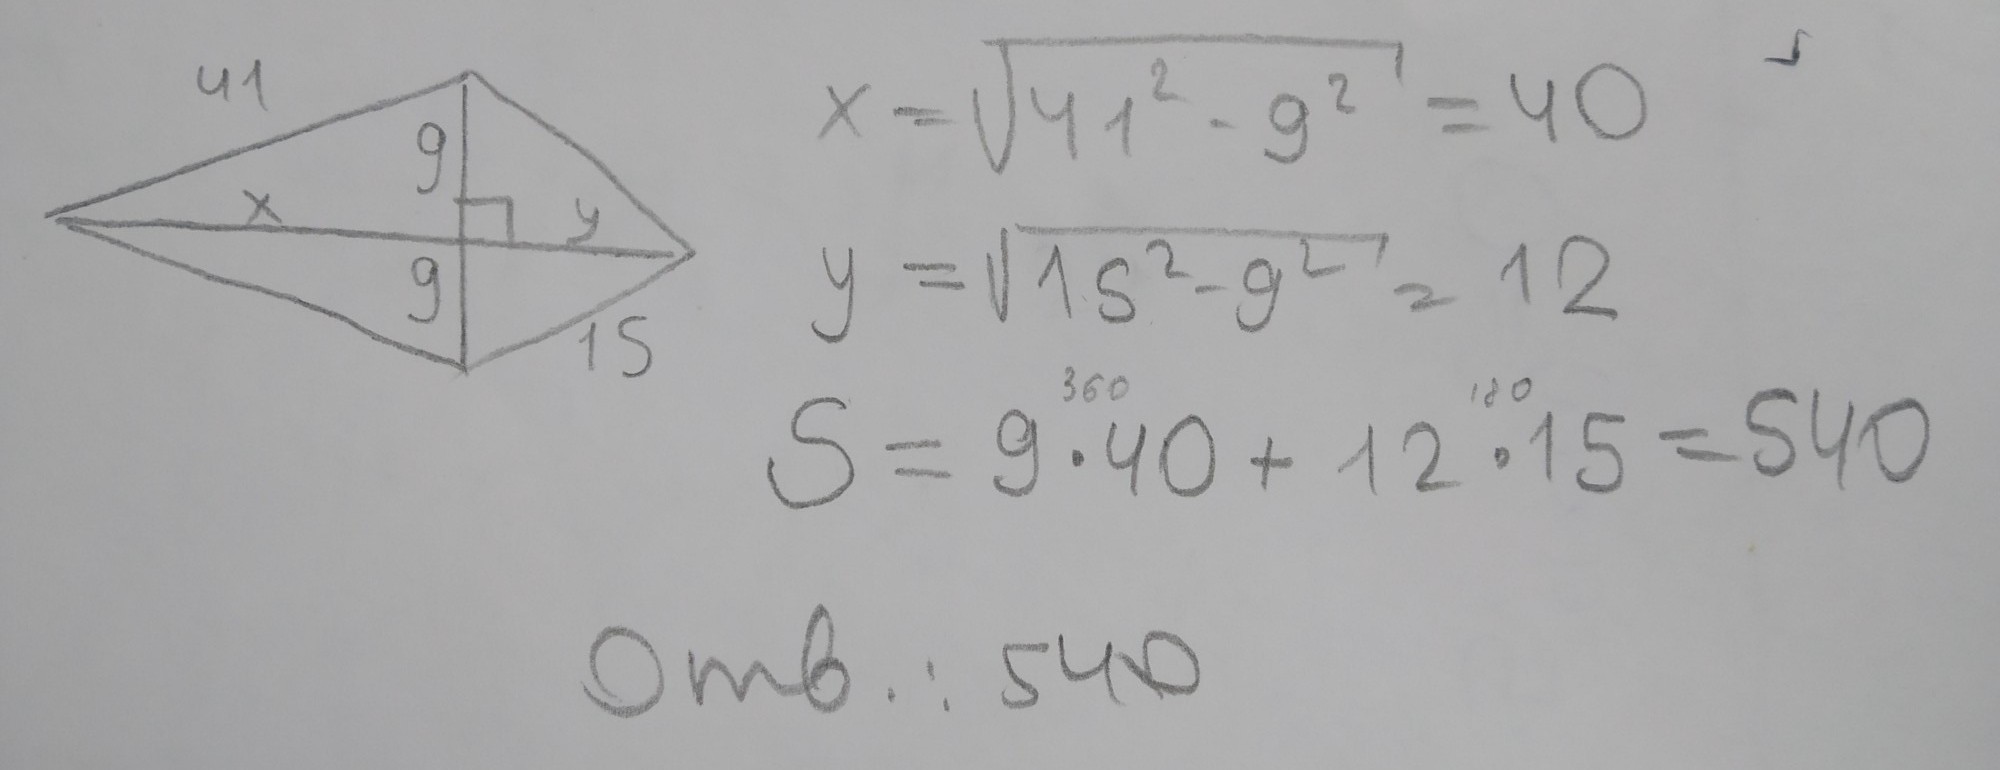 41
9
x
y
9
15
x = √41² - 9² = 40
y = √15² - 9² = 12
360 180
S = 9 · 40 + 12 · 15 = 540
Отв.: 540